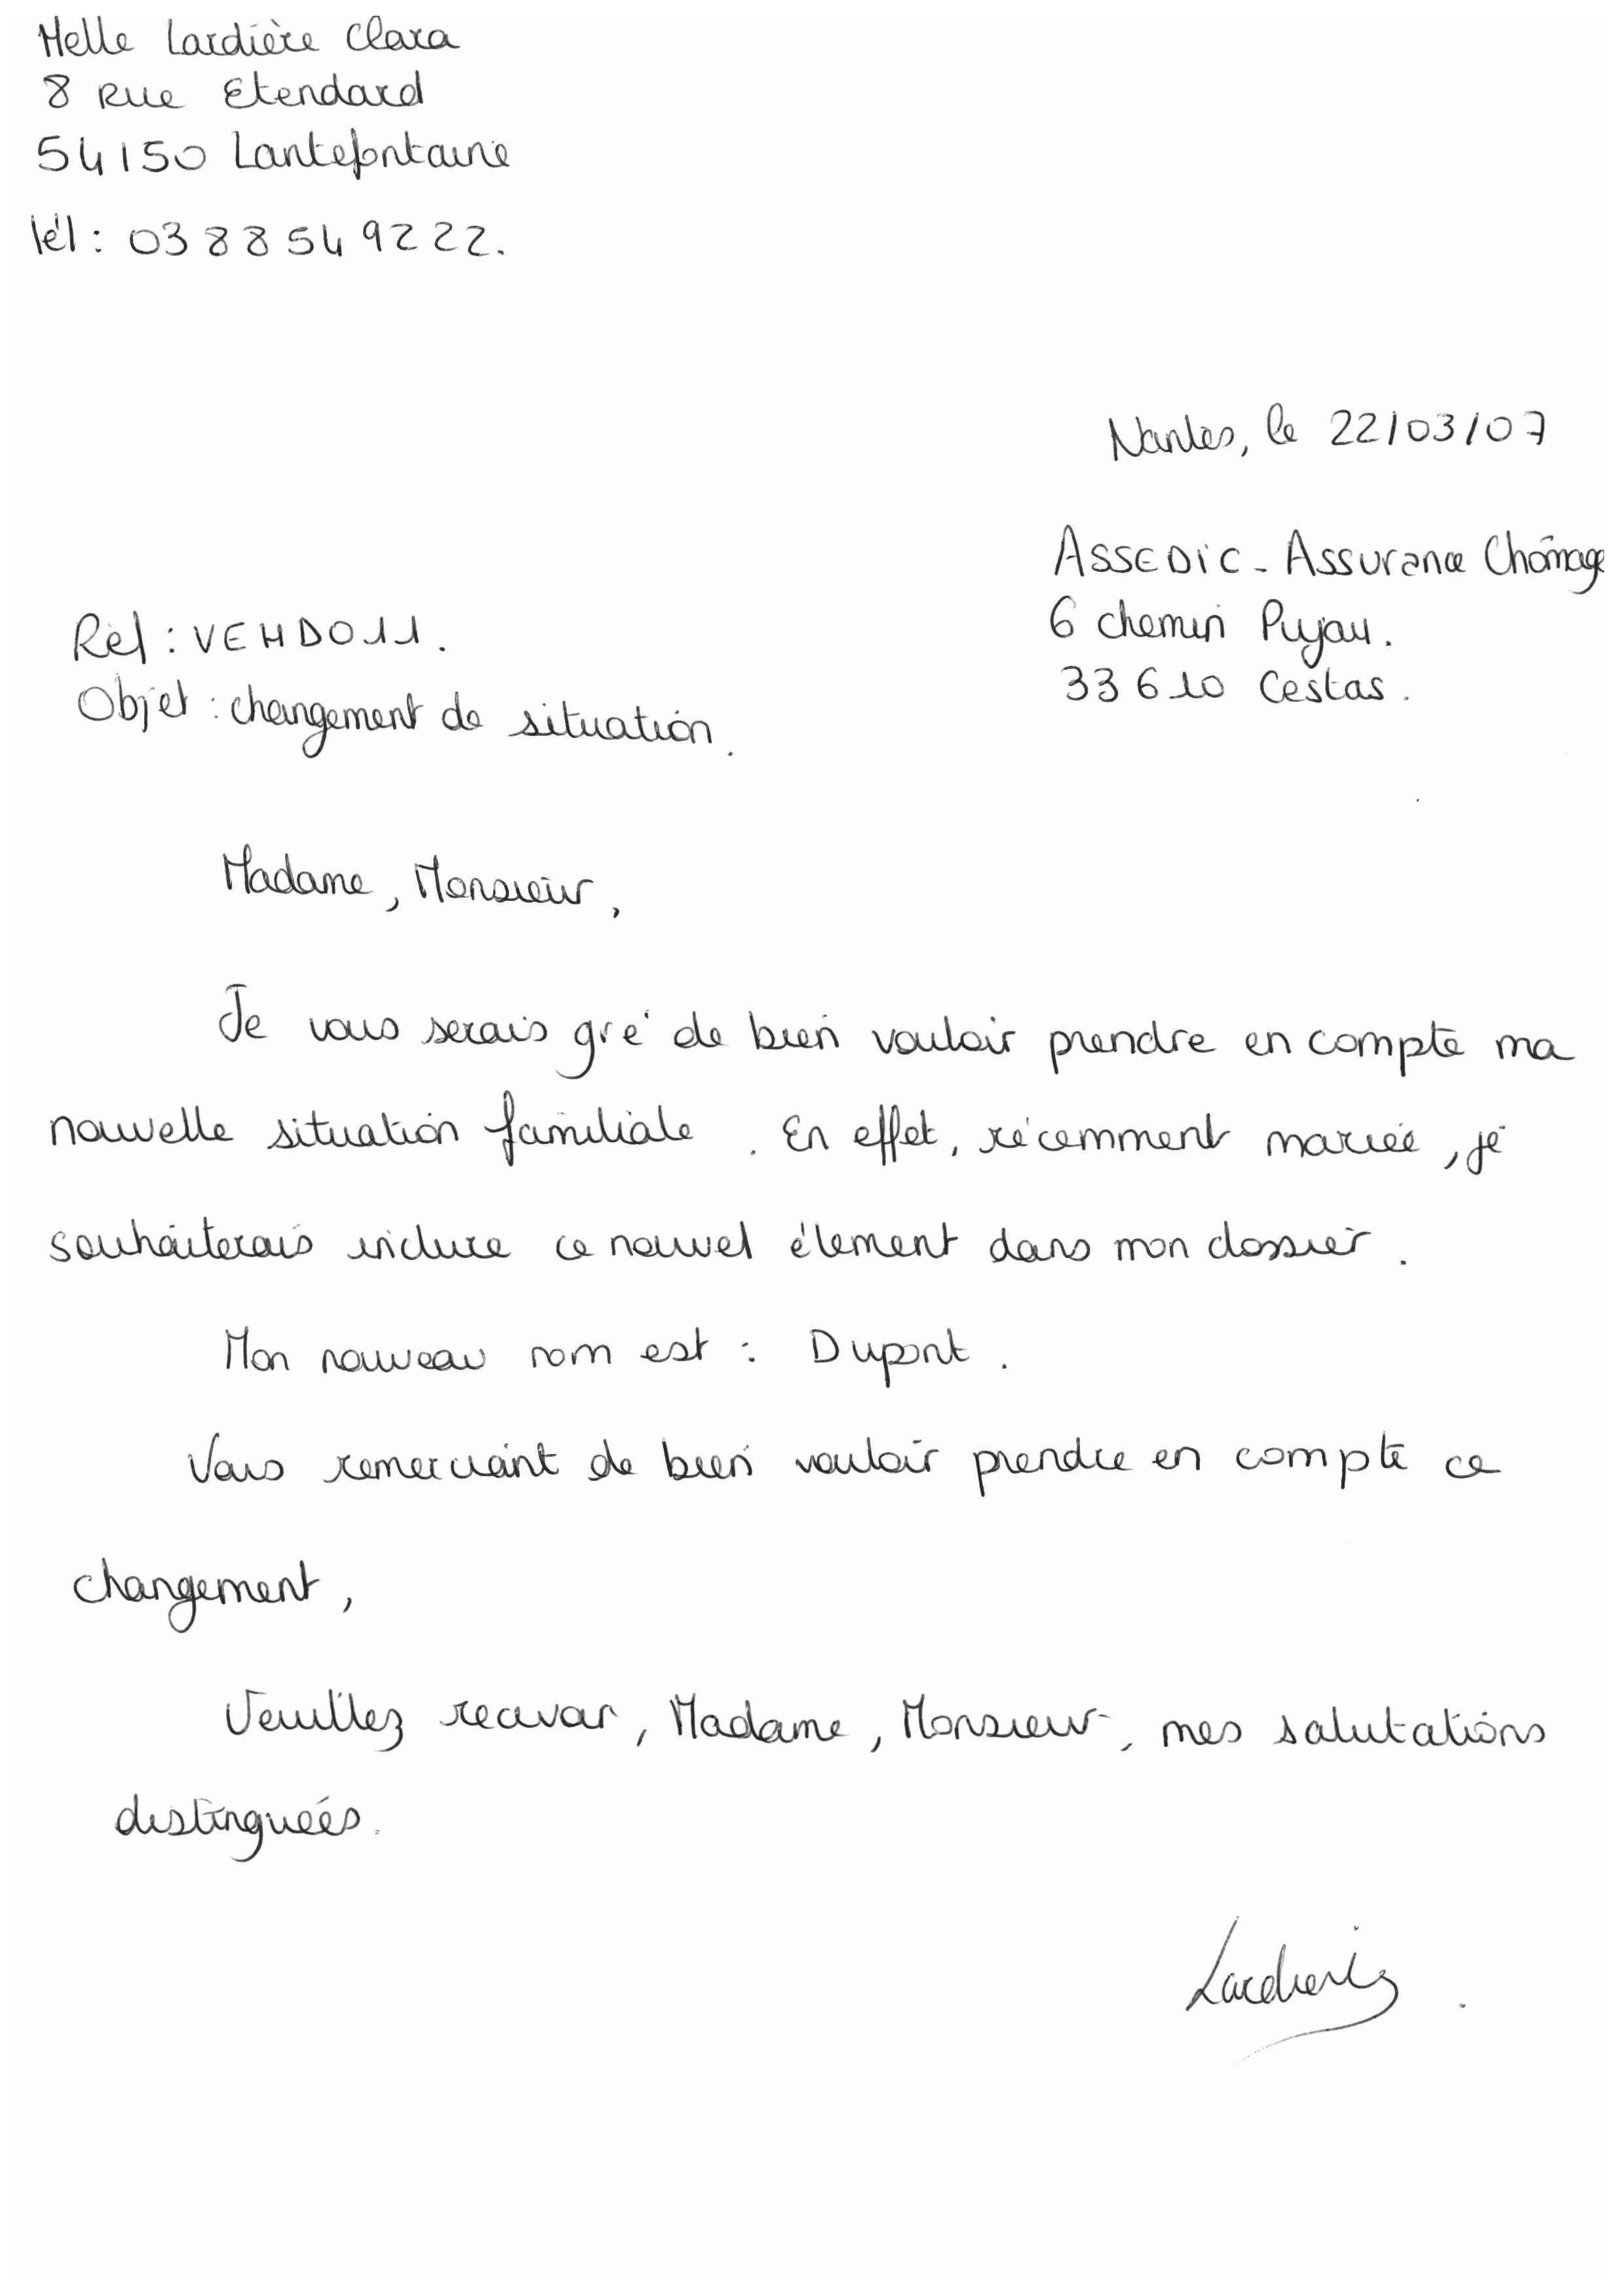 Melle Lardière Clara
8 Rue Etendard
54150 Lantefontaine
Tél : 0388549222.
Nantes, le 22/03/07
ASSEDIC - Assurance Chômage
6 chemin Pujau.
33610 Cestas.
Réf : VEHDO11.
Objet : changement de situation.
Madame, Monsieur,
Je vous serais gré de bien vouloir prendre en compte ma
nouvelle situation familiale. En effet, récemment mariée, je
souhaiterais inclure ce nouvel élement dans mon dossier.
Mon nouveau nom est : Dupont.
Vous remerciant de bien vouloir prendre en compte ce
changement,
Veuillez recevoir, Madame, Monsieur, mes salutations
distinguées.